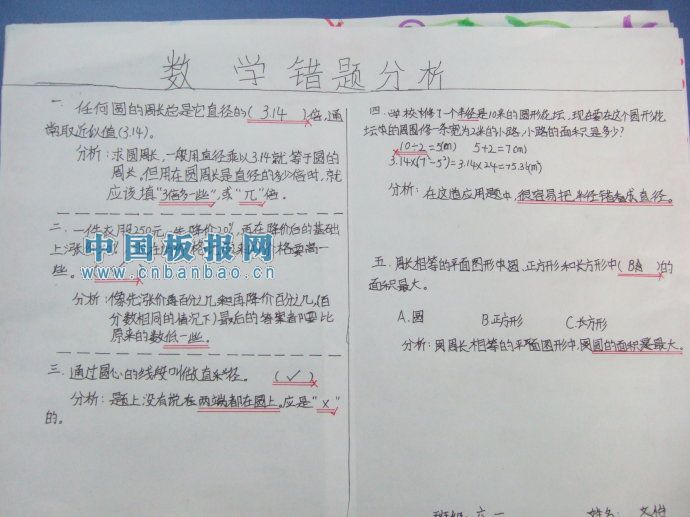 数学错题分析
一.任何圆的周长总是它直径的(3.14)倍,通
常取近似值(3.14)。
分析:求圆周长,一般用直径乘以3.14就等于圆的
周长。但用在圆周长是直径的多少倍时,就
应该填"3倍多一些",或"兀"倍。
二.一件衣服250元,先降价20%,再在降价后的基础
上涨
价格要高一
些。
分析:像先涨价再百分之几和再降价百分之几(百
分数相同的情况下)最后的答案都要比
原来的数低一些。
三.通过圆心的线段叫做直径。 (✓)
分析:题上没有说在两端都在圆上。应是"×"
的。
四.学校修了一个半径是10米的圆形花坛,现在要在这个圆形花
坛的周围修一条宽为2米的小路,小路的面积是多少?
10÷2=5(m) 5+2=7(m)
3.14×(7²-5²)=3.14×24=75.36(m²)
分析:在这道应用题中,很容易把半径错看成直径。
五.周长相等的平面图形中圆、正方形和长方形中(B)的
面积最大。
A.圆 B.正方形 C.长方形
分析:周长相等的平面图形中,圆的面积是最大。
中国板报网
www.cnbanbao.cn
班级:六一 姓名: